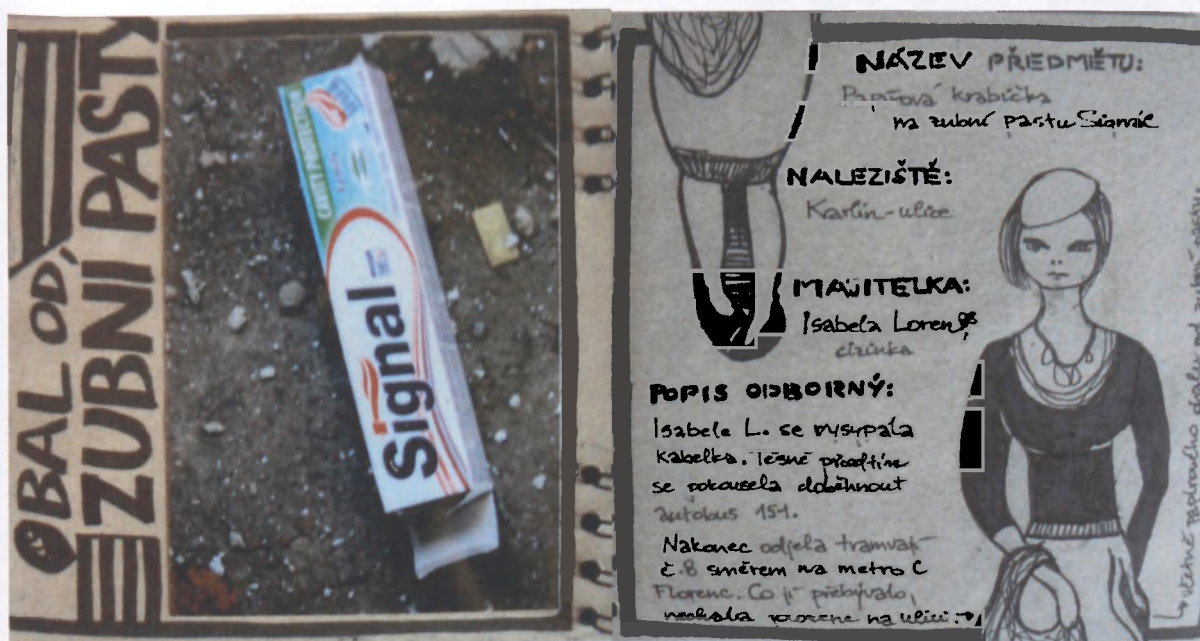 OBAL OD
ZUBNÍ PASTY
CAVITY PROTECTION
Signal
NÁZEV PŘEDMĚTU:
Papírová krabička
na zubní pastu
NALEZIŠTĚ:
Karlín-ulice
MAJITELKA:
Isabela
cizinka
POPIS ODBORNÝ:
Isabele L. se vysypala
kabelka. Těsně předtím
se pokoušela doběhnout
autobus 151.
Nakonec odjela tramvají
č. 8 směrem na metro C
Florenc. Co jí přebývalo,
nechala na ulici.